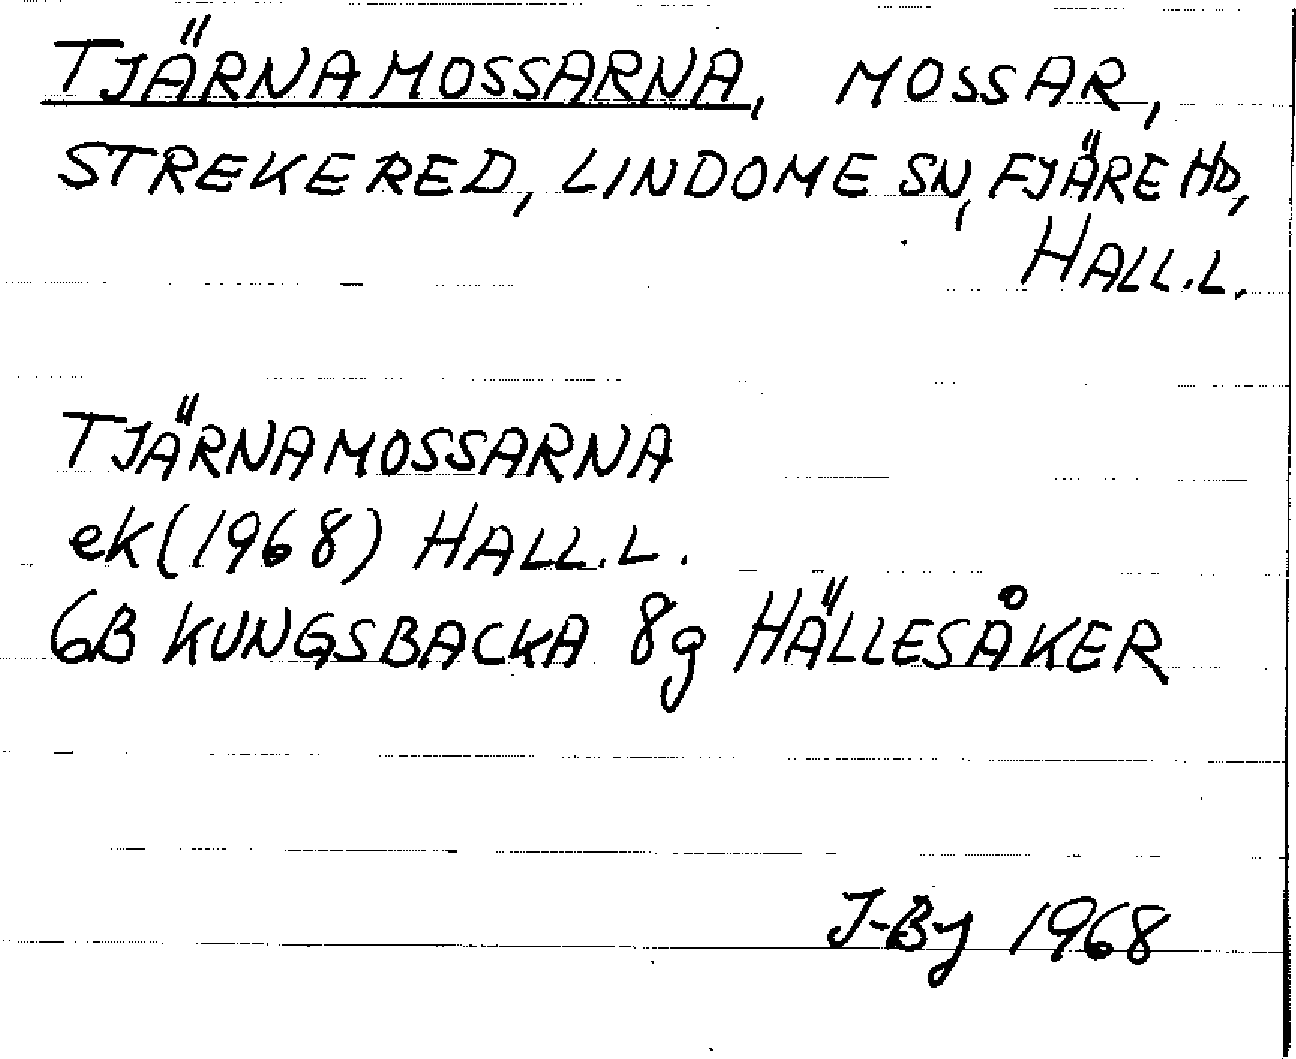 TJÄRNAMOSSARNA, MOSSAR,
STREKERED, LINDOME SN, FJÄRE HD,
HALL.L.
TJÄRNAMOSSARNA
ek (1968) HALL.L.
6B KUNGSBACKA 8g HÄLLESÅKER
J-By 1968